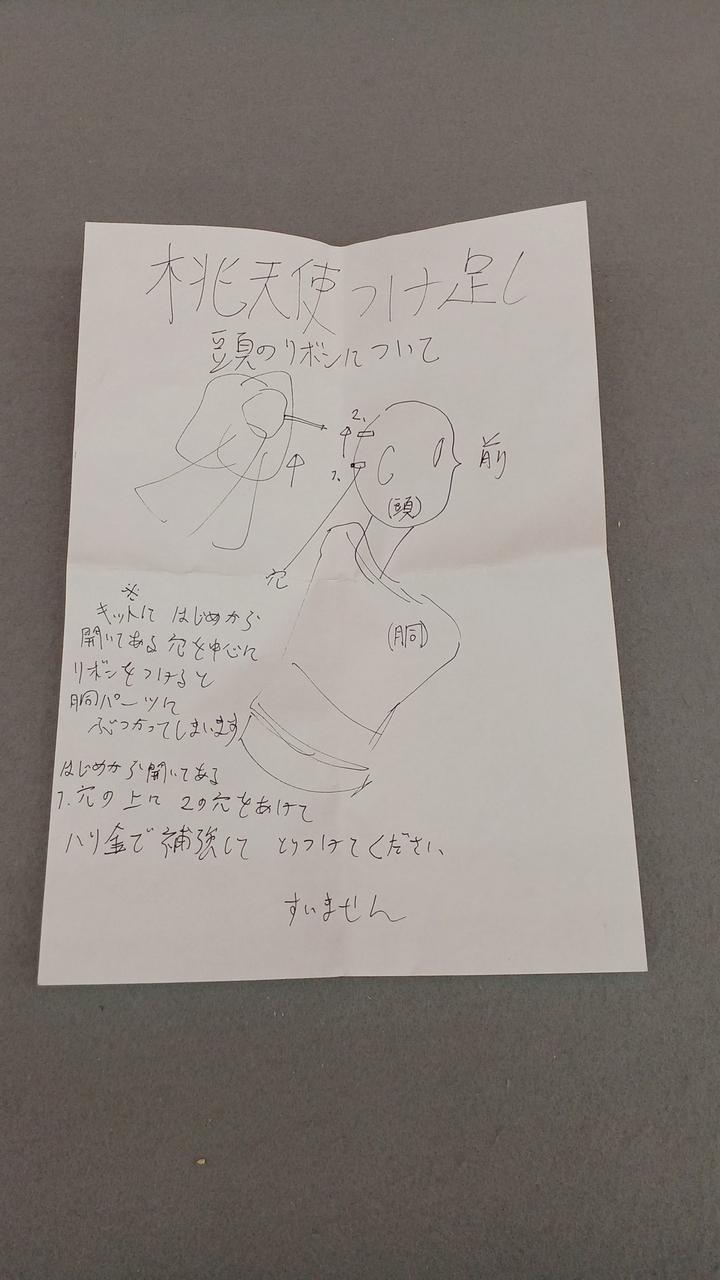 桃天使つけ足し
頭のリボンについて
2.
1.
前
(頭)
穴
(胴)
※
キットに はじめから
開いてある 穴を中心に
リボンをつけると
胴パーツに
ぶつかってしまいます
はじめから開いてある
1.穴の上に 2の穴をあけて
ハリ金で補強して とりつけてください
すいません